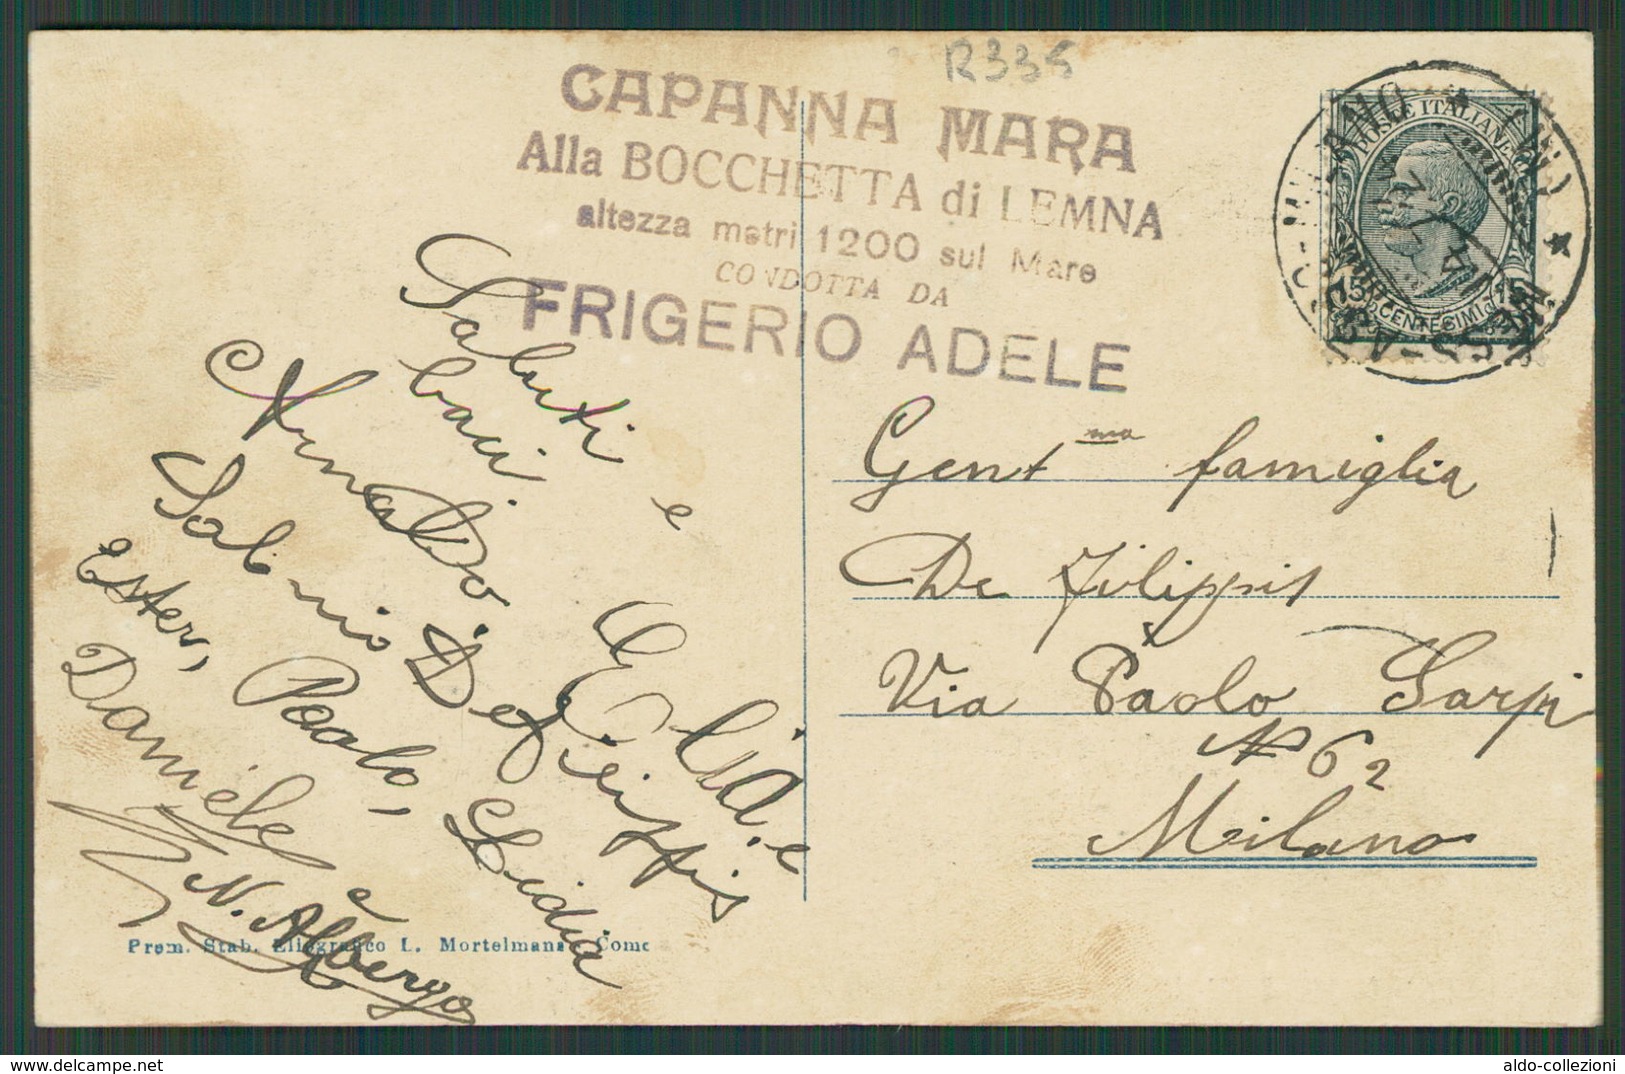 R335
CAPANNA MARA
Alla BOCCHETTA di LEMNA
altezza metri 1200 sul Mare
CONDOTTA DA
FRIGERIO ADELE
POSTE ITALIANE
15 CENTESIMI 15
MILANO
Saluti e
baci
Arnaldo Elia, e
Sabino De Filippis
Ester, Paolo, Lidia
Daniele e
N. Albergo
Gent ma famiglia
De Filippis
Via Paolo Sarpi
N 62
Milano
Prem. Stab. Eliografico L. Mortelmans Como
delcampe.net
aldo-collezioni